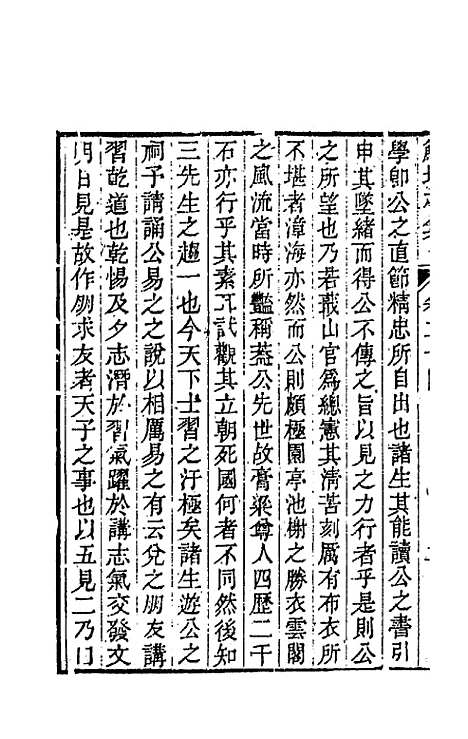 學卽公之直節精忠所自出也諸生其能讀公之書引
申其墜緒而得公不傳之旨以見之力行者乎是則公
之所望也乃若蕺山官爲總憲其淸苦刻厲有布衣所
不堪者漳海亦然而公則頗極園亭池榭之勝衣雲閣
之風流當時所豔稱葢公先世故膏粱尊人四歷二千
石亦行乎其素耳試觀其立朝死國何者不同然後知
三先生之趨一也今天下士習之汙極矣諸生遊公之
祠予請誦公易之之說以相厲易之有云兌之朋友講
習乾道也乾惕及夕志潛於習氣躍於講志氣交發文
明日見是故作朋求友者天子之事也以五見二乃曰